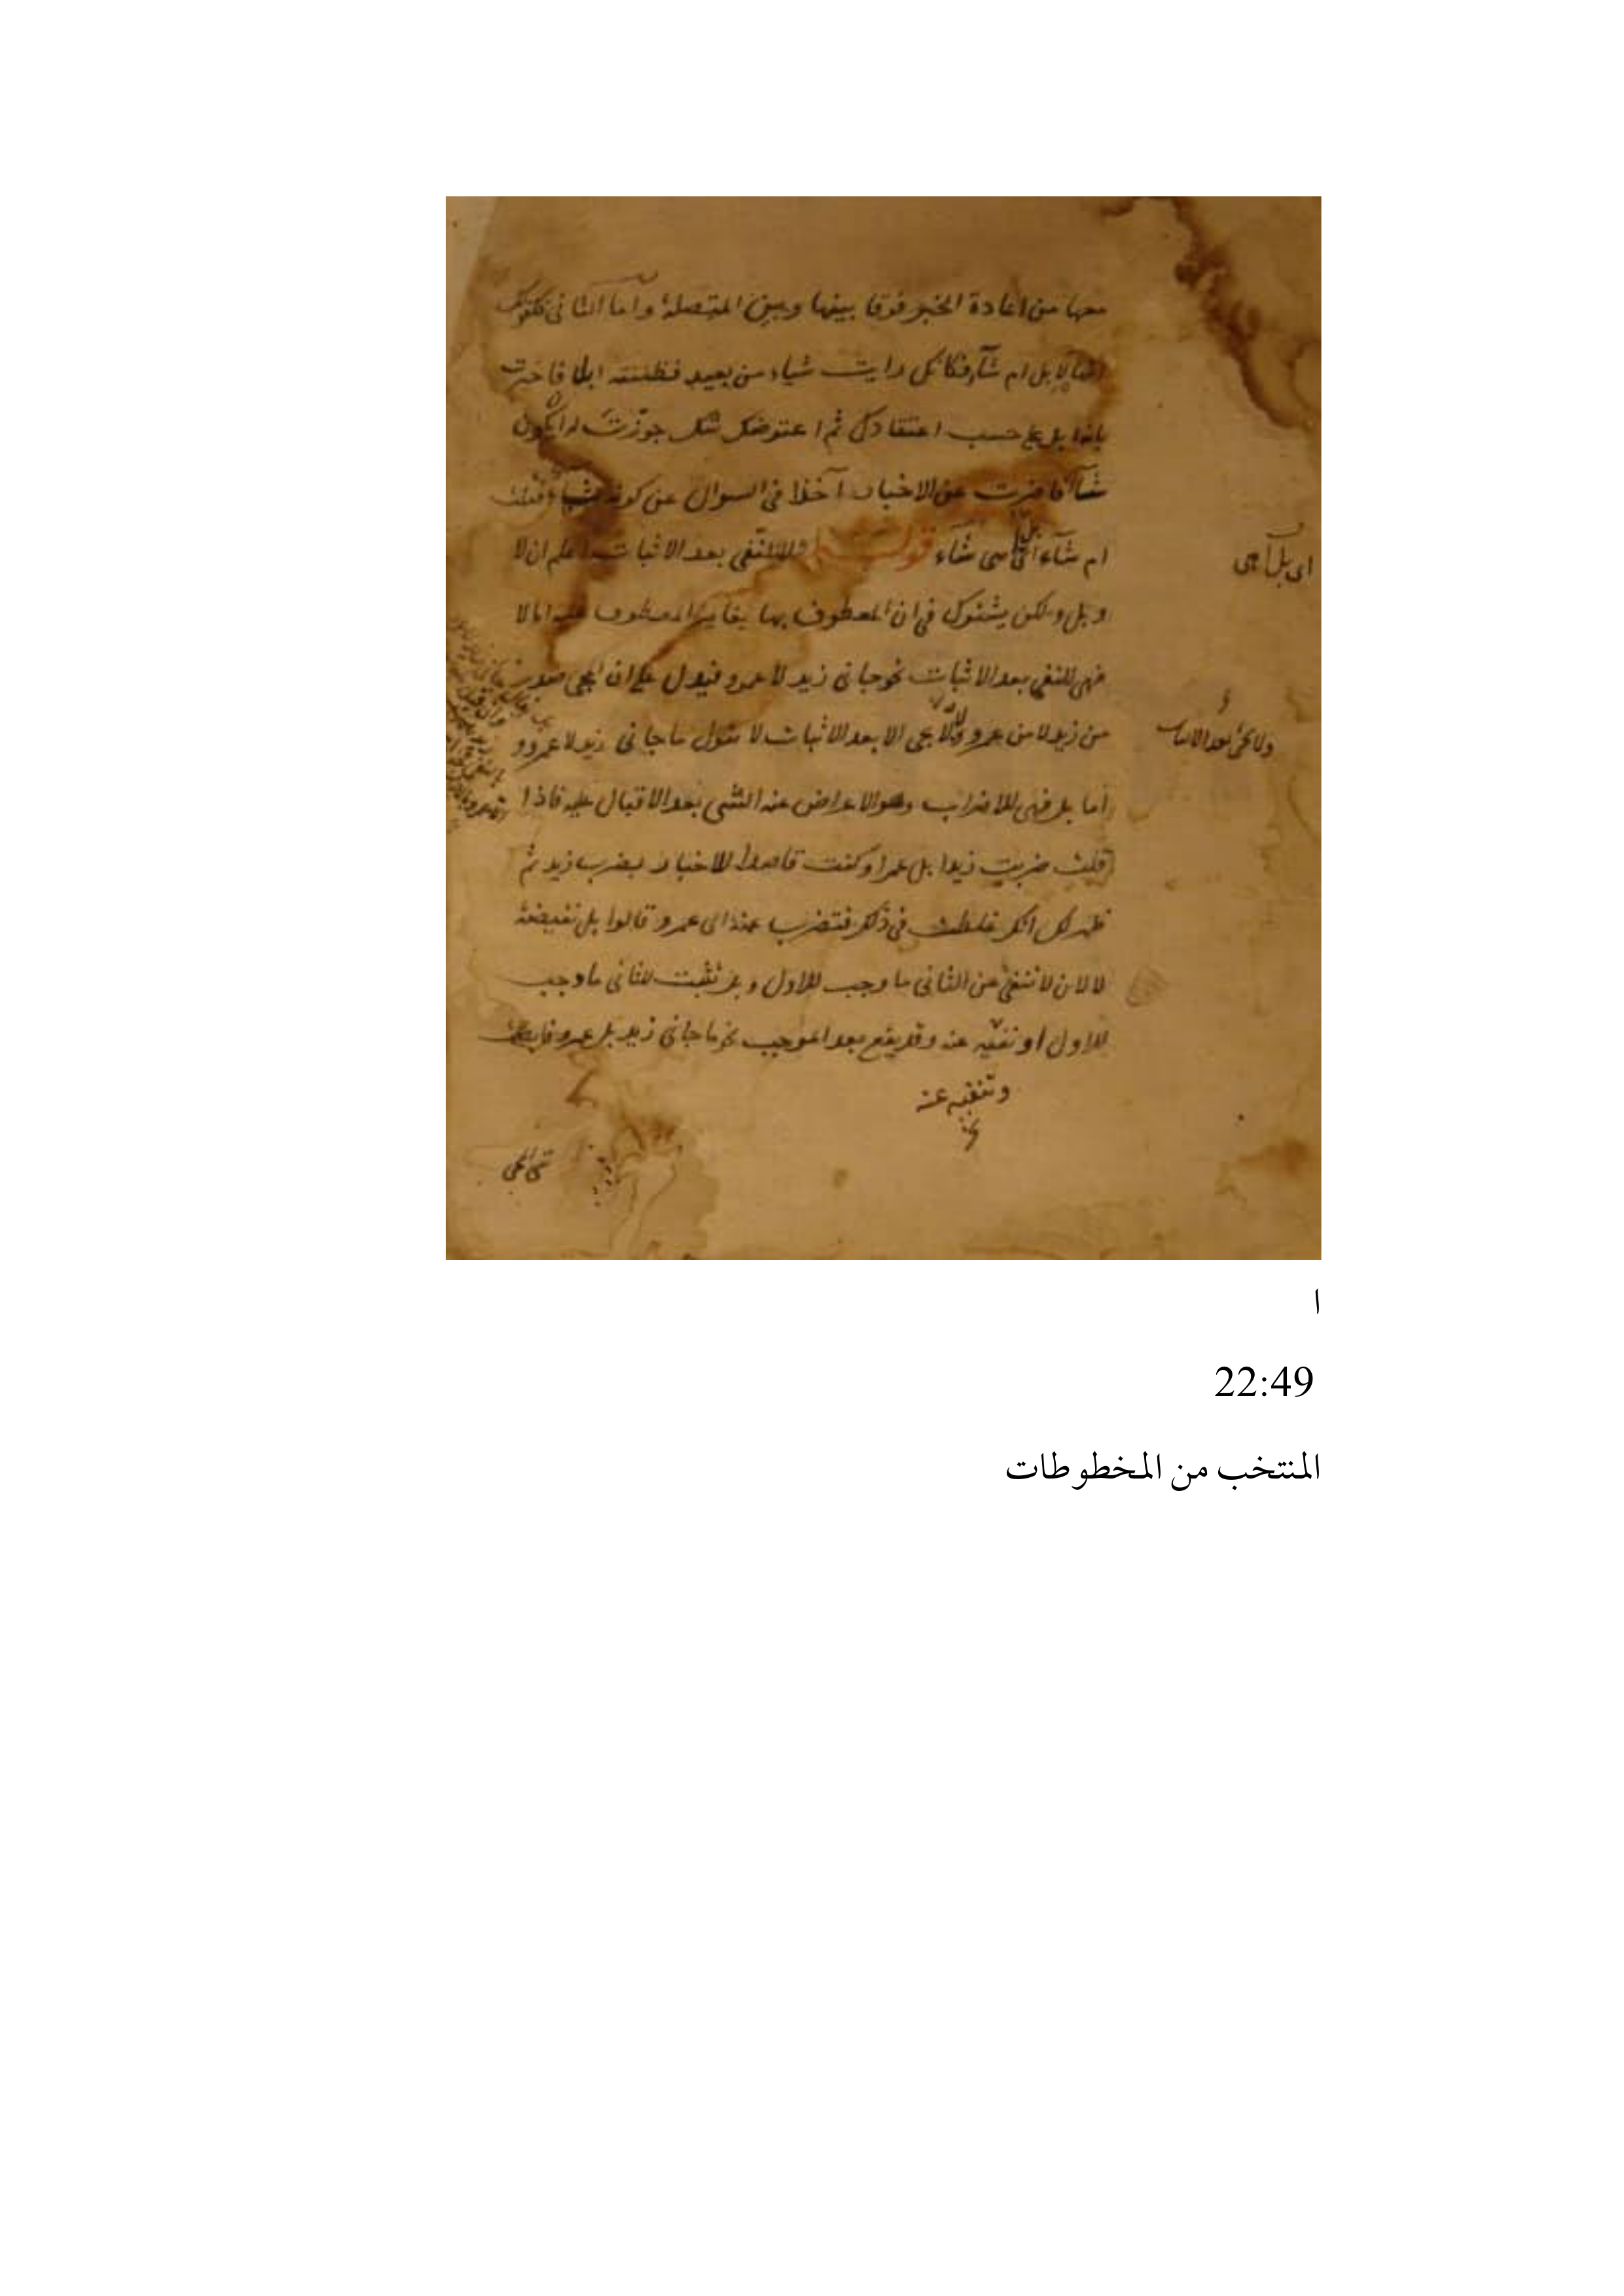 معها من اعادة الخبر فرقا بينها وبين المتصلة واما الثانى فكقولك
انها لابل ام شآء فكانك رايت شياء من بعيد فظننته ابلا فاخبرت
بانها ابل على حسب اعتقادك ثم اعترضك شك جوزت ان يكون
شآء فاضربت عن الاخبار آخذا فى السوال عن كونه شياء فقلت
ام شآء اى بل اهى شآء قوله لا للنفى بعد الاثبات اعلم ان لا
و بل ولكن يشترك فى ان المعطوف بها يغاير المعطوف عليه اما لا
فهى للنفى بعد الاثبات نحو جانى زيد لا عمرو فيدل على ان المجى صدر
من زيد لا من عمرو ولا يجى الا بعد الاثبات لا تقول ما جانى زيد لا عمرو و
اما بل فهى للاضراب وهو الاعراض عن الشى بعد الاقبال عليه فاذا
قلت ضربت زيدا بل عمرا وكنت قاصدا للاخبار بضرب زيد ثم
ظهر لك انك غلطت فى ذلك فتضرب عنه الى عمرو قالوا بل نقيضة
لا لان لا تنفى عن الثانى ما وجب للاول و بل تثبت للثانى ما وجب
للاول او نفيه عنه وقد يقع بعد الموجب نحو ما جانى زيد بل عمرو
وتنفيه عنه
اى بل أهى
ولا يجئ بعد الاثبات
ا
22:49
المنتخب من المخطوطات